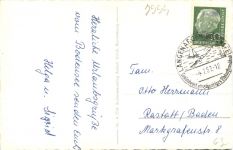 9554
Herzliche Urlaubsgrüße
vom Bodensee senden Euch
Helga u. Sigrid
Fam.
Otto Herrmann
Rastatt/Baden
Markgrafenstr. 8
LANGENARGEN